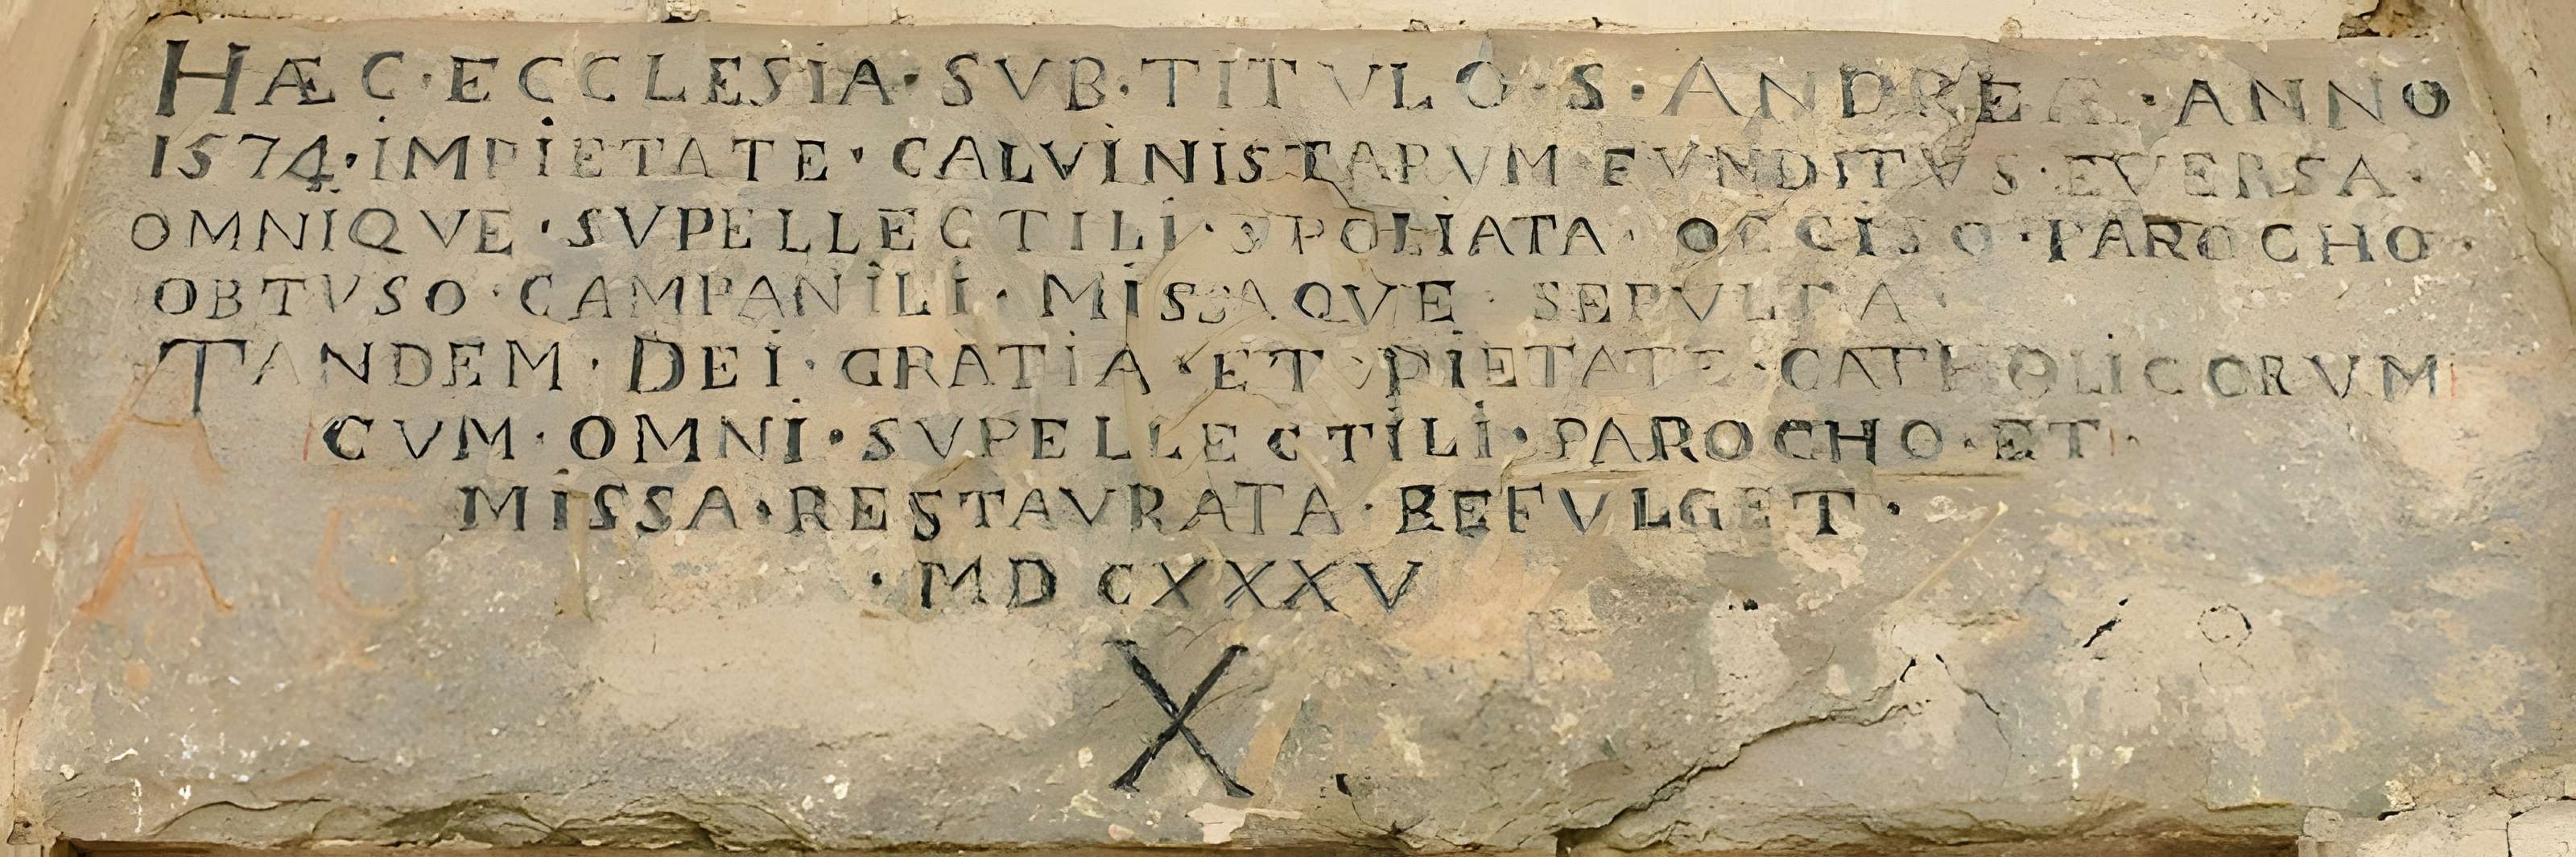 HÆC·ECCLESIA·SVB·TITVLO·S·ANDREÆ·ANNO
1574·IMPIETATE·CALVINISTARVM FVNDITVS·EVERSA·
OMNIQVE·SVPELLECTILI·SPOLIATA·OCCISO·PAROCHO·
OBTVSO·CAMPANILI·MISSAQVE·SEPVLTA·
TANDEM·DEI·GRATIA·ET·PIETATE·CATHOLICORVM
CVM·OMNI·SVPELLECTILI·PAROCHO·ET·
MISSA·RESTAVRATA·REFVLGET·
·MDCXXXV
X